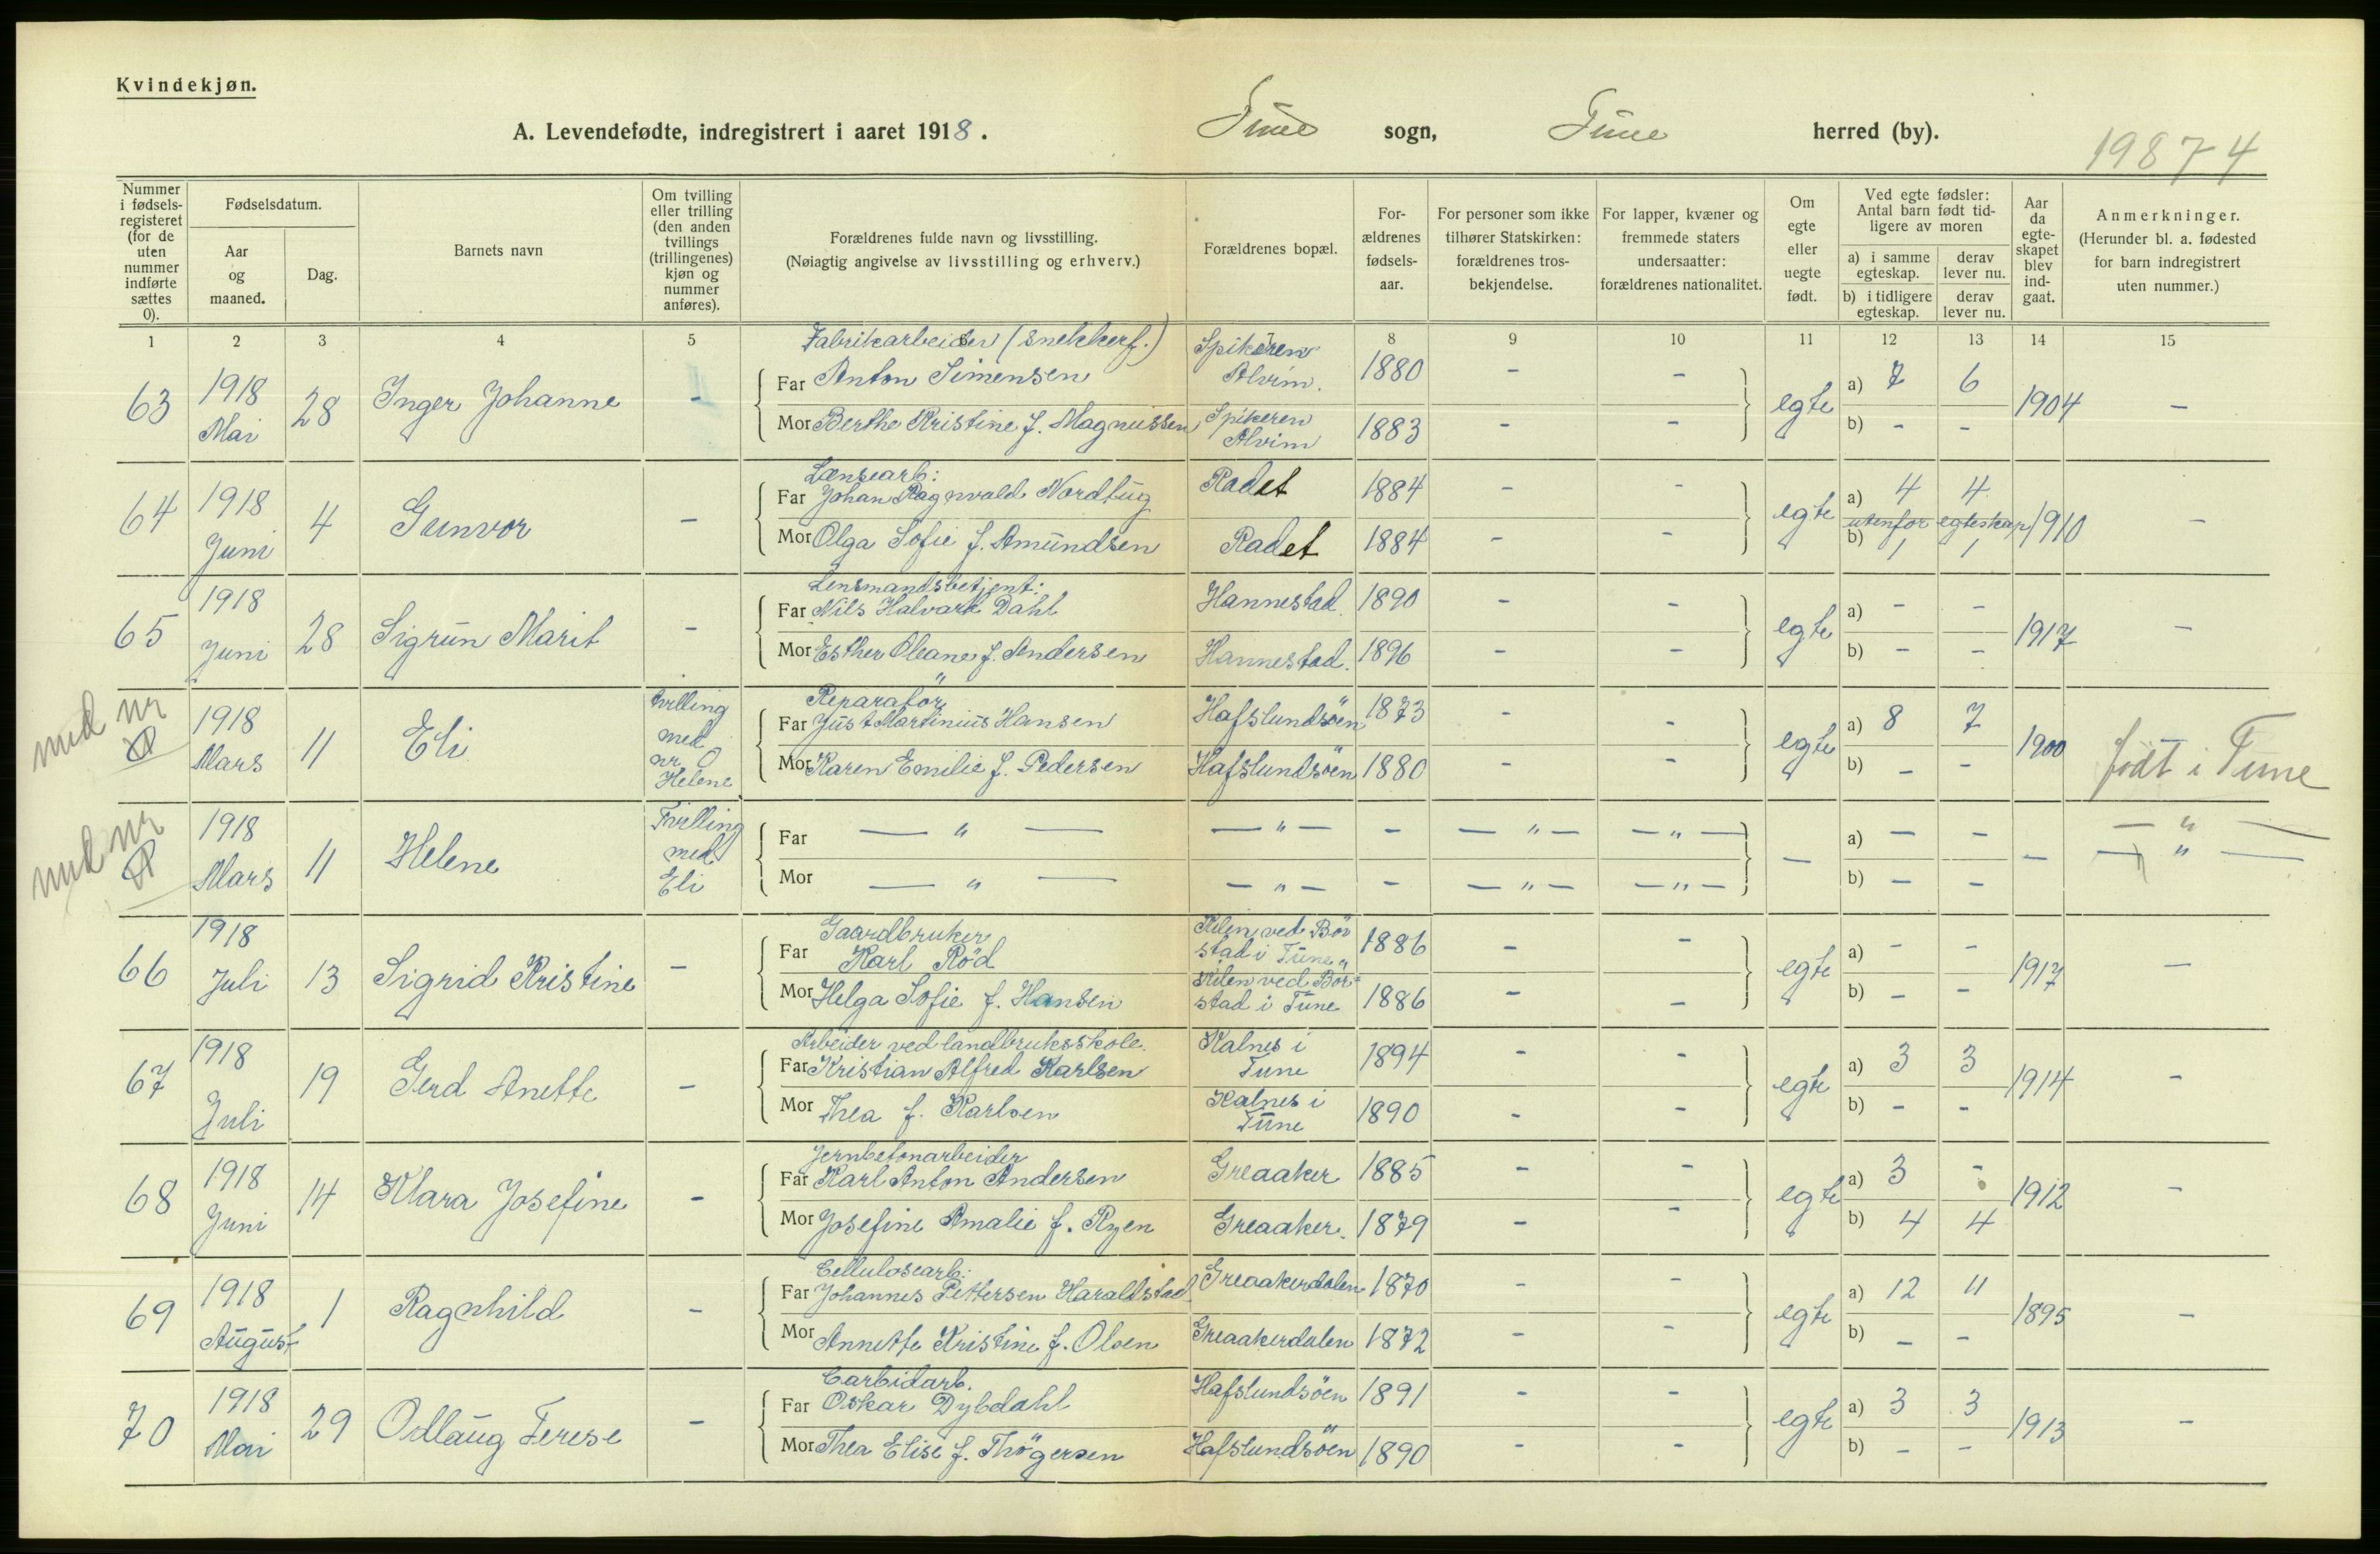 Kvindekjøn.
A. Levendefødte, indregistrert i aaret 1918. Tune sogn, Tune herred (by).
19874
Nummer i fødsels-registeret (for de uten nummer indførte sættes 0).
Fødselsdatum.
Aar og maaned.
Dag.
Barnets navn
Om tvilling eller trilling (den anden tvillings (trillingenes) kjøn og nummer anføres).
Forældrenes fulde navn og livsstilling.
(Nøiagtig angivelse av livsstilling og erhverv.)
Forældrenes bopæl.
For-ældrenes fødsels-aar.
For personer som ikke tilhører Statskirken: forældrenes tros-bekjendelse.
For lapper, kvæner og fremmede staters undersaatter: forældrenes nationalitet.
Om egte eller uegte født.
Ved egte fødsler: Antal barn født tid-ligere av moren
a) i samme egteskap. derav lever nu.
b) i tidligere egteskap. derav lever nu.
Aar da egte-skapet blev ind-gaat.
Anmerkninger.
(Herunder bl. a. fødested for barn indregistrert uten nummer.)
1 2 3 4 5 8 9 10 11 12 13 14 15
Fabrikarbeider (snekkerf.) Spikeren
63 1918 Mai 28 Inger Johanne - Far Anton Simensen Alvim. 1880 - - egte a) 7 6 1904 -
Mor Berthe Kristine f. Magnussen Spikeren Alvim 1883 - - b) - -
Lænsearb:
64 1918 Juni 4 Gunvor - Far Johan Ragnvald Nordbug Radet 1884 - - egte a) 4 4 1910 -
utenfor egteskap
Mor Olga Sofie f. Amundsen Radet 1884 - - b) 1 1
Lensmandsbetjent:
65 1918 Juni 28 Sigrun Marit - Far Nils Halvard Dahl Hannestad 1890 - - egte a) - - 1917 -
Mor Esther Oleane f. Andersen Hannestad. 1896 - - b) - -
Reparatör
med nr 0 1918 Mars 11 Eli tvilling med nr. 0 Helene Far Just Martinius Hansen Hafslundsöen 1873 - - egte a) 8 7 1900 født i Tune
Mor Karen Emilie f. Pedersen Hafslundsöen 1880 - - b) - -
med nr 0 1918 Mars 11 Helene Tvilling med Eli Far — " — — " — - — " — — " — — a) - - - — " —
Mor — " — — " — - — " — — " — b) - - — " —
Gaardbruker
66 1918 Juli 13 Sigrid Kristine - Far Karl Röd Kilen ved Bör stad i Tune 1886 - - egte a) - - 1917 -
Mor Helga Sofie f. Hansen Kilen ved Bör= stad i Tune 1886 - - b) - -
Arbeider ved landbruksskole.
67 1918 Juli 19 Gerd Anette - Far Kristian Alfred Karlsen Kalnes i Tune 1894 - - egte a) 3 3 1914 -
Mor Thea f. Karlsen Kalnes i Tune 1890 - - b) - -
Jernbetonarbeider
68 1918 Juni 14 Klara Josefine - Far Karl Anton Andersen Greaaker 1885 - - egte a) 3 - 1912 -
Mor Josefine Amalie f. Ryen Greaaker. 1879 - - b) 4 4
Cellulosearb:
69 1918 August 1 Ragnhild - Far Johannes Pettersen Haraldstad Greaakerdalen 1870 - - egte a) 12 11 1895 -
Mor Annette Kristine f. Olsen Greaakerdalen 1872 - - b) - -
Carbidarb.
70 1918 Mai 29 Odlaug Terese - Far Oskar Dybdahl Hafslundsöen 1891 - - egte a) 3 3 1913 -
Mor Thea Elise f. Thögersen Hafslundsöen 1890 - - b) - -